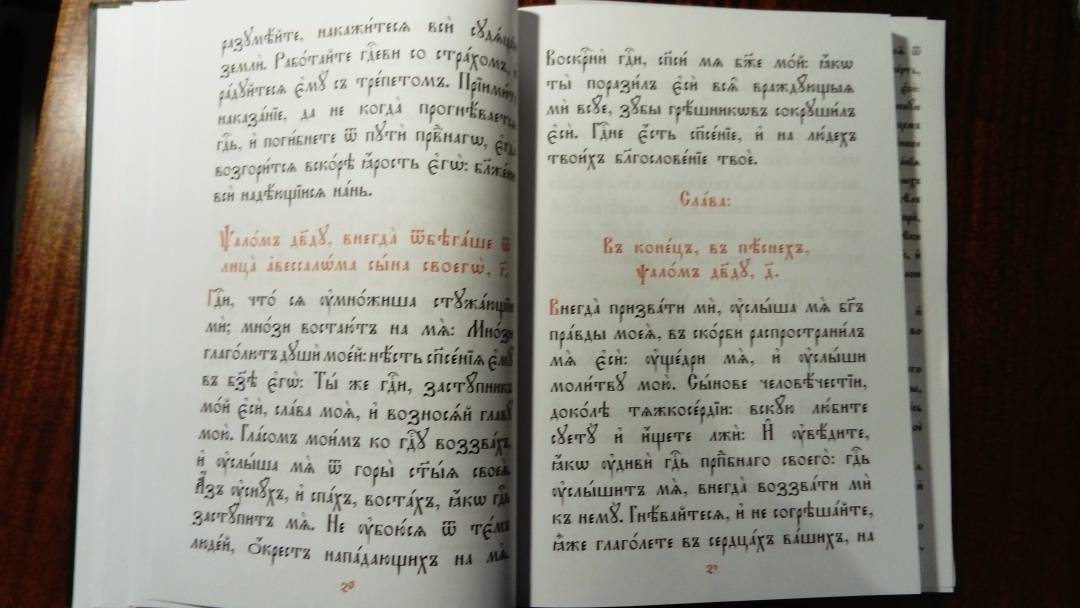 разꙋмѣ́йте, накажи́тесѧ всѝ сꙋдѧ́щїи
землѝ. Рабо́тайте гдⷭ҇еви со стра́хомъ, и҆
ра́дꙋйтесѧ є҆мꙋ̀ съ тре́петомъ. Прїими́те
наказа́нїе, да не когда̀ прогнѣ́ваетсѧ
гдⷭ҇ь, и҆ поги́бнете ѿ пꙋтѝ првⷣнагѡ, є҆гда̀
возгори́тсѧ вско́рѣ ꙗ҆́рость є҆гѡ̀: бл҃же́ни
всѝ надѣ́ющїисѧ на́нь.
Ѱало́мъ дв҃дꙋ, внегда̀ ѿбѣга́ше ѿ
лица̀ а҆вессалѡ́ма сы́на своегѡ̀, г҃.
Гдⷭ҇и, что́ сѧ ᲂу҆мно́жиша стꙋжа́ющїи
мѝ; мно́зи востаю́тъ на мѧ̀: Мно́зи
глаго́лютъ дꙋшѝ мое́й: нѣ́сть сп҃се́нїѧ є҆мꙋ̀
въ бз҃ѣ є҆гѡ̀: Ты́ же гдⷭ҇и, застꙋ́пникъ
мо́й є҆сѝ, сла́ва моѧ̀, и҆ возносѧ́й главꙋ̀
мою̀. Гла́сомъ мои́мъ ко гдⷭ҇ꙋ воззва́хъ,
и҆ ᲂу҆слы́ша мѧ̀ ѿ горы̀ ст҃ы́ѧ своеѧ̀.
А҆́зъ ᲂу҆снꙋ́хъ, и҆ спа́хъ, воста́хъ, ꙗ҆́кѡ гдⷭ҇ь
застꙋ́питъ мѧ̀. Не ᲂу҆бою́сѧ ѿ те́мъ
люде́й, ѻ҆́крестъ напа́дающихъ на мѧ̀.
20
Воскрⷭ҇нѝ гдⷭ҇и, сп҃си́ мѧ бж҃е мо́й: ꙗ҆́кѡ
ты̀ порази́лъ є҆сѝ всѧ̑ враждꙋ́ющыѧ
мѝ всꙋ́е, зꙋ́бы грѣ́шникѡвъ сокрꙋши́лъ
є҆сѝ. Гдⷭ҇не є҆́сть сп҃се́нїе, и҆ на лю́дехъ
твои́хъ бл҃гослове́нїе твоѐ.
Сла́ва:
Въ коне́цъ, въ пѣ́снехъ,
ѱало́мъ дв҃дꙋ, д҃.
Внегда̀ призва́ти мѝ, ᲂу҆слы́ша мѧ̀ бг҃ъ
пра́вды моеѧ̀, въ ско́рби распространи́лъ
мѧ̀ є҆сѝ: ᲂу҆ще́дри мѧ̀, и҆ ᲂу҆слы́ши
моли́твꙋ мою̀. Сы́нове человѣ́честїи,
доко́лѣ тѧжкосе́рдїи: вскꙋ́ю лю́бите
сꙋетꙋ̀ и҆ и҆́щете лжѝ: И҆ ᲂу҆вѣ́дите,
ꙗ҆́кѡ ᲂу҆дивѝ гдⷭ҇ь прп҃бнаго своего̀: гдⷭ҇ь
ᲂу҆слы́шитъ мѧ̀, внегда̀ воззва́ти мѝ
къ немꙋ̀. Гнѣ́вайтесѧ, и҆ не согрѣша́йте,
ꙗ҆̀же глаго́лете въ сердца́хъ ва́шихъ, на
21